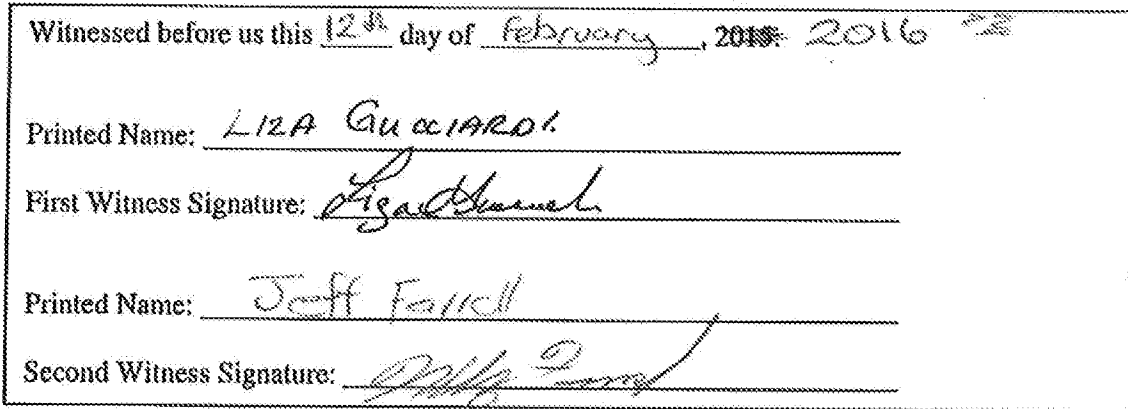 Witnessed before us this 12th day of February, 2015. 2016
Printed Name: LIZA GUCCIARDI
First Witness Signature:
Printed Name: Jeff Farrell
Second Witness Signature: